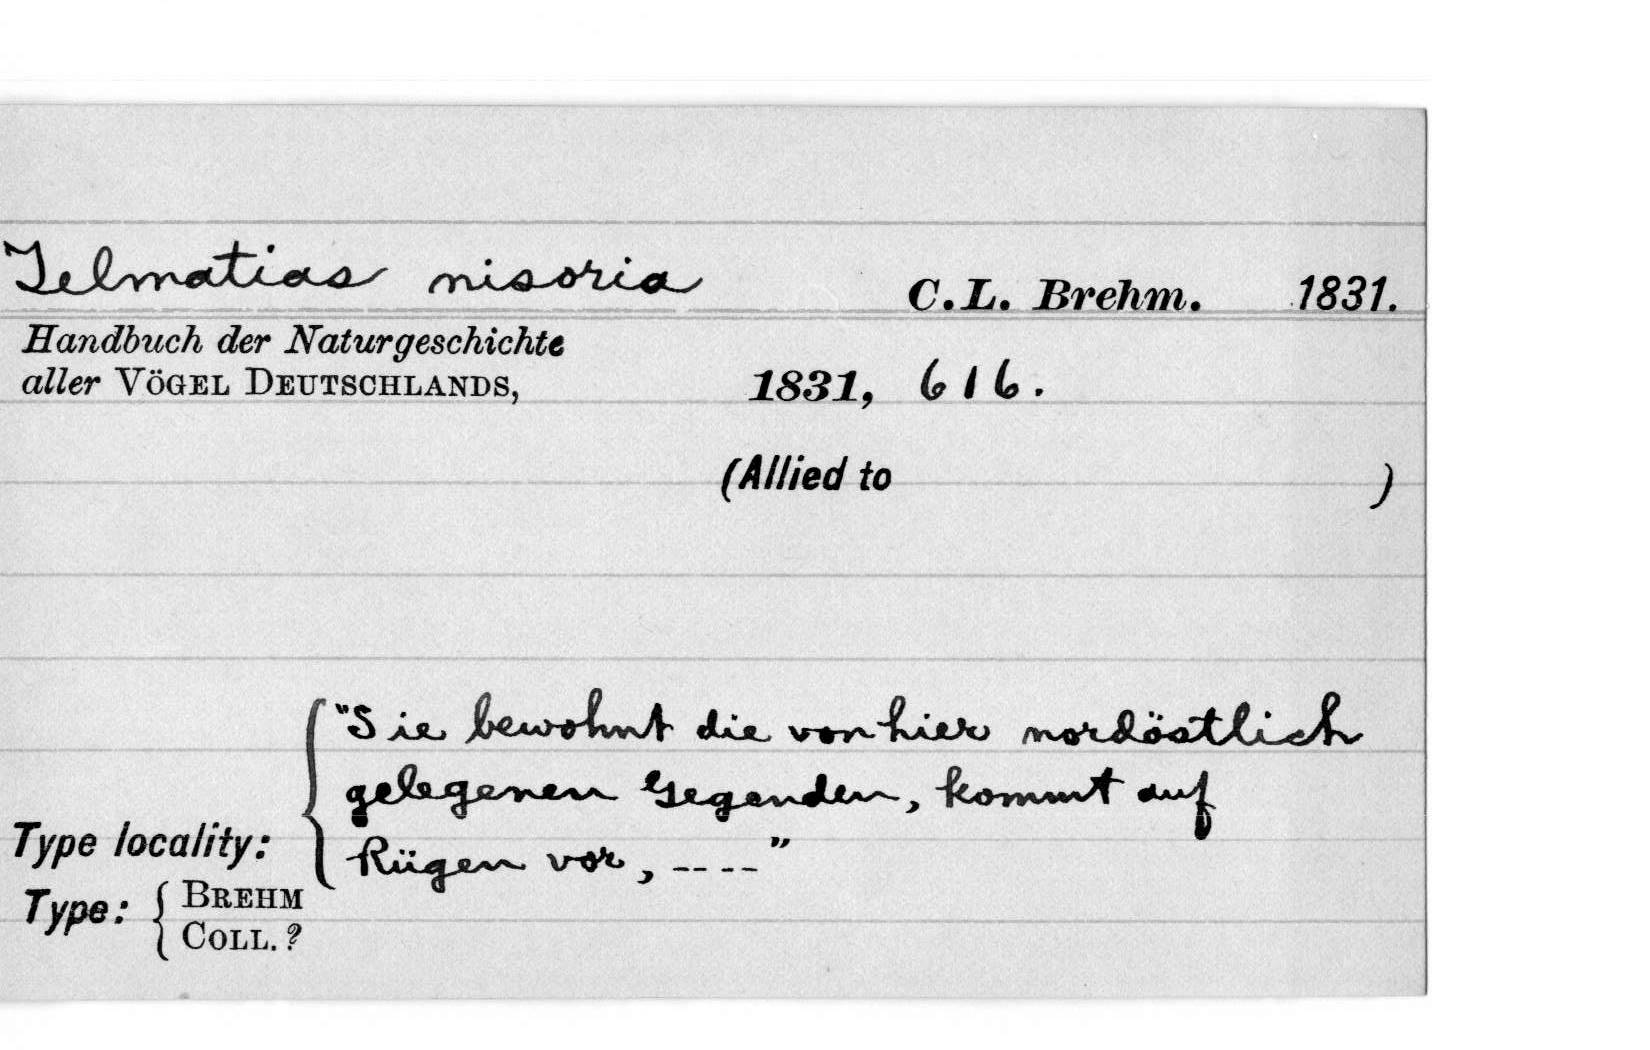 Telmatias nisoria C.L. Brehm. 1831.
Handbuch der Naturgeschichte
aller VÖGEL DEUTSCHLANDS, 1831, 616.
(Allied to )
"Sie bewohnt die von hier nordöstlich
gelegenen Gegenden, kommt auf
Type locality: Rügen vor, ----"
Type: BREHM
COLL.?